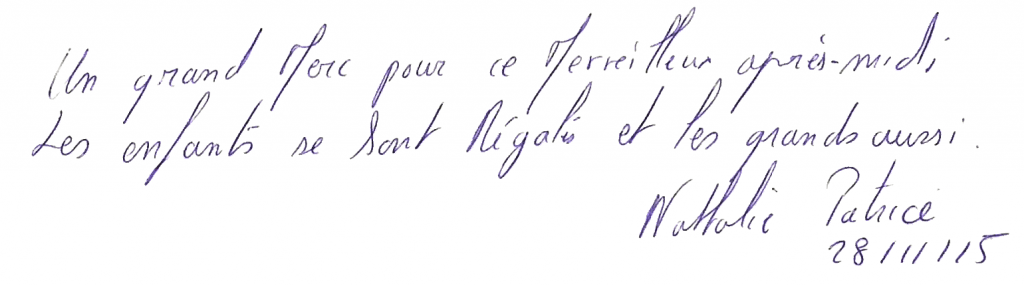 Un grand Merc pour ce Merveilleux après-midi
Les enfants se sont Régalés et les grands aussi.
Nathalie Patrice
28/11/15